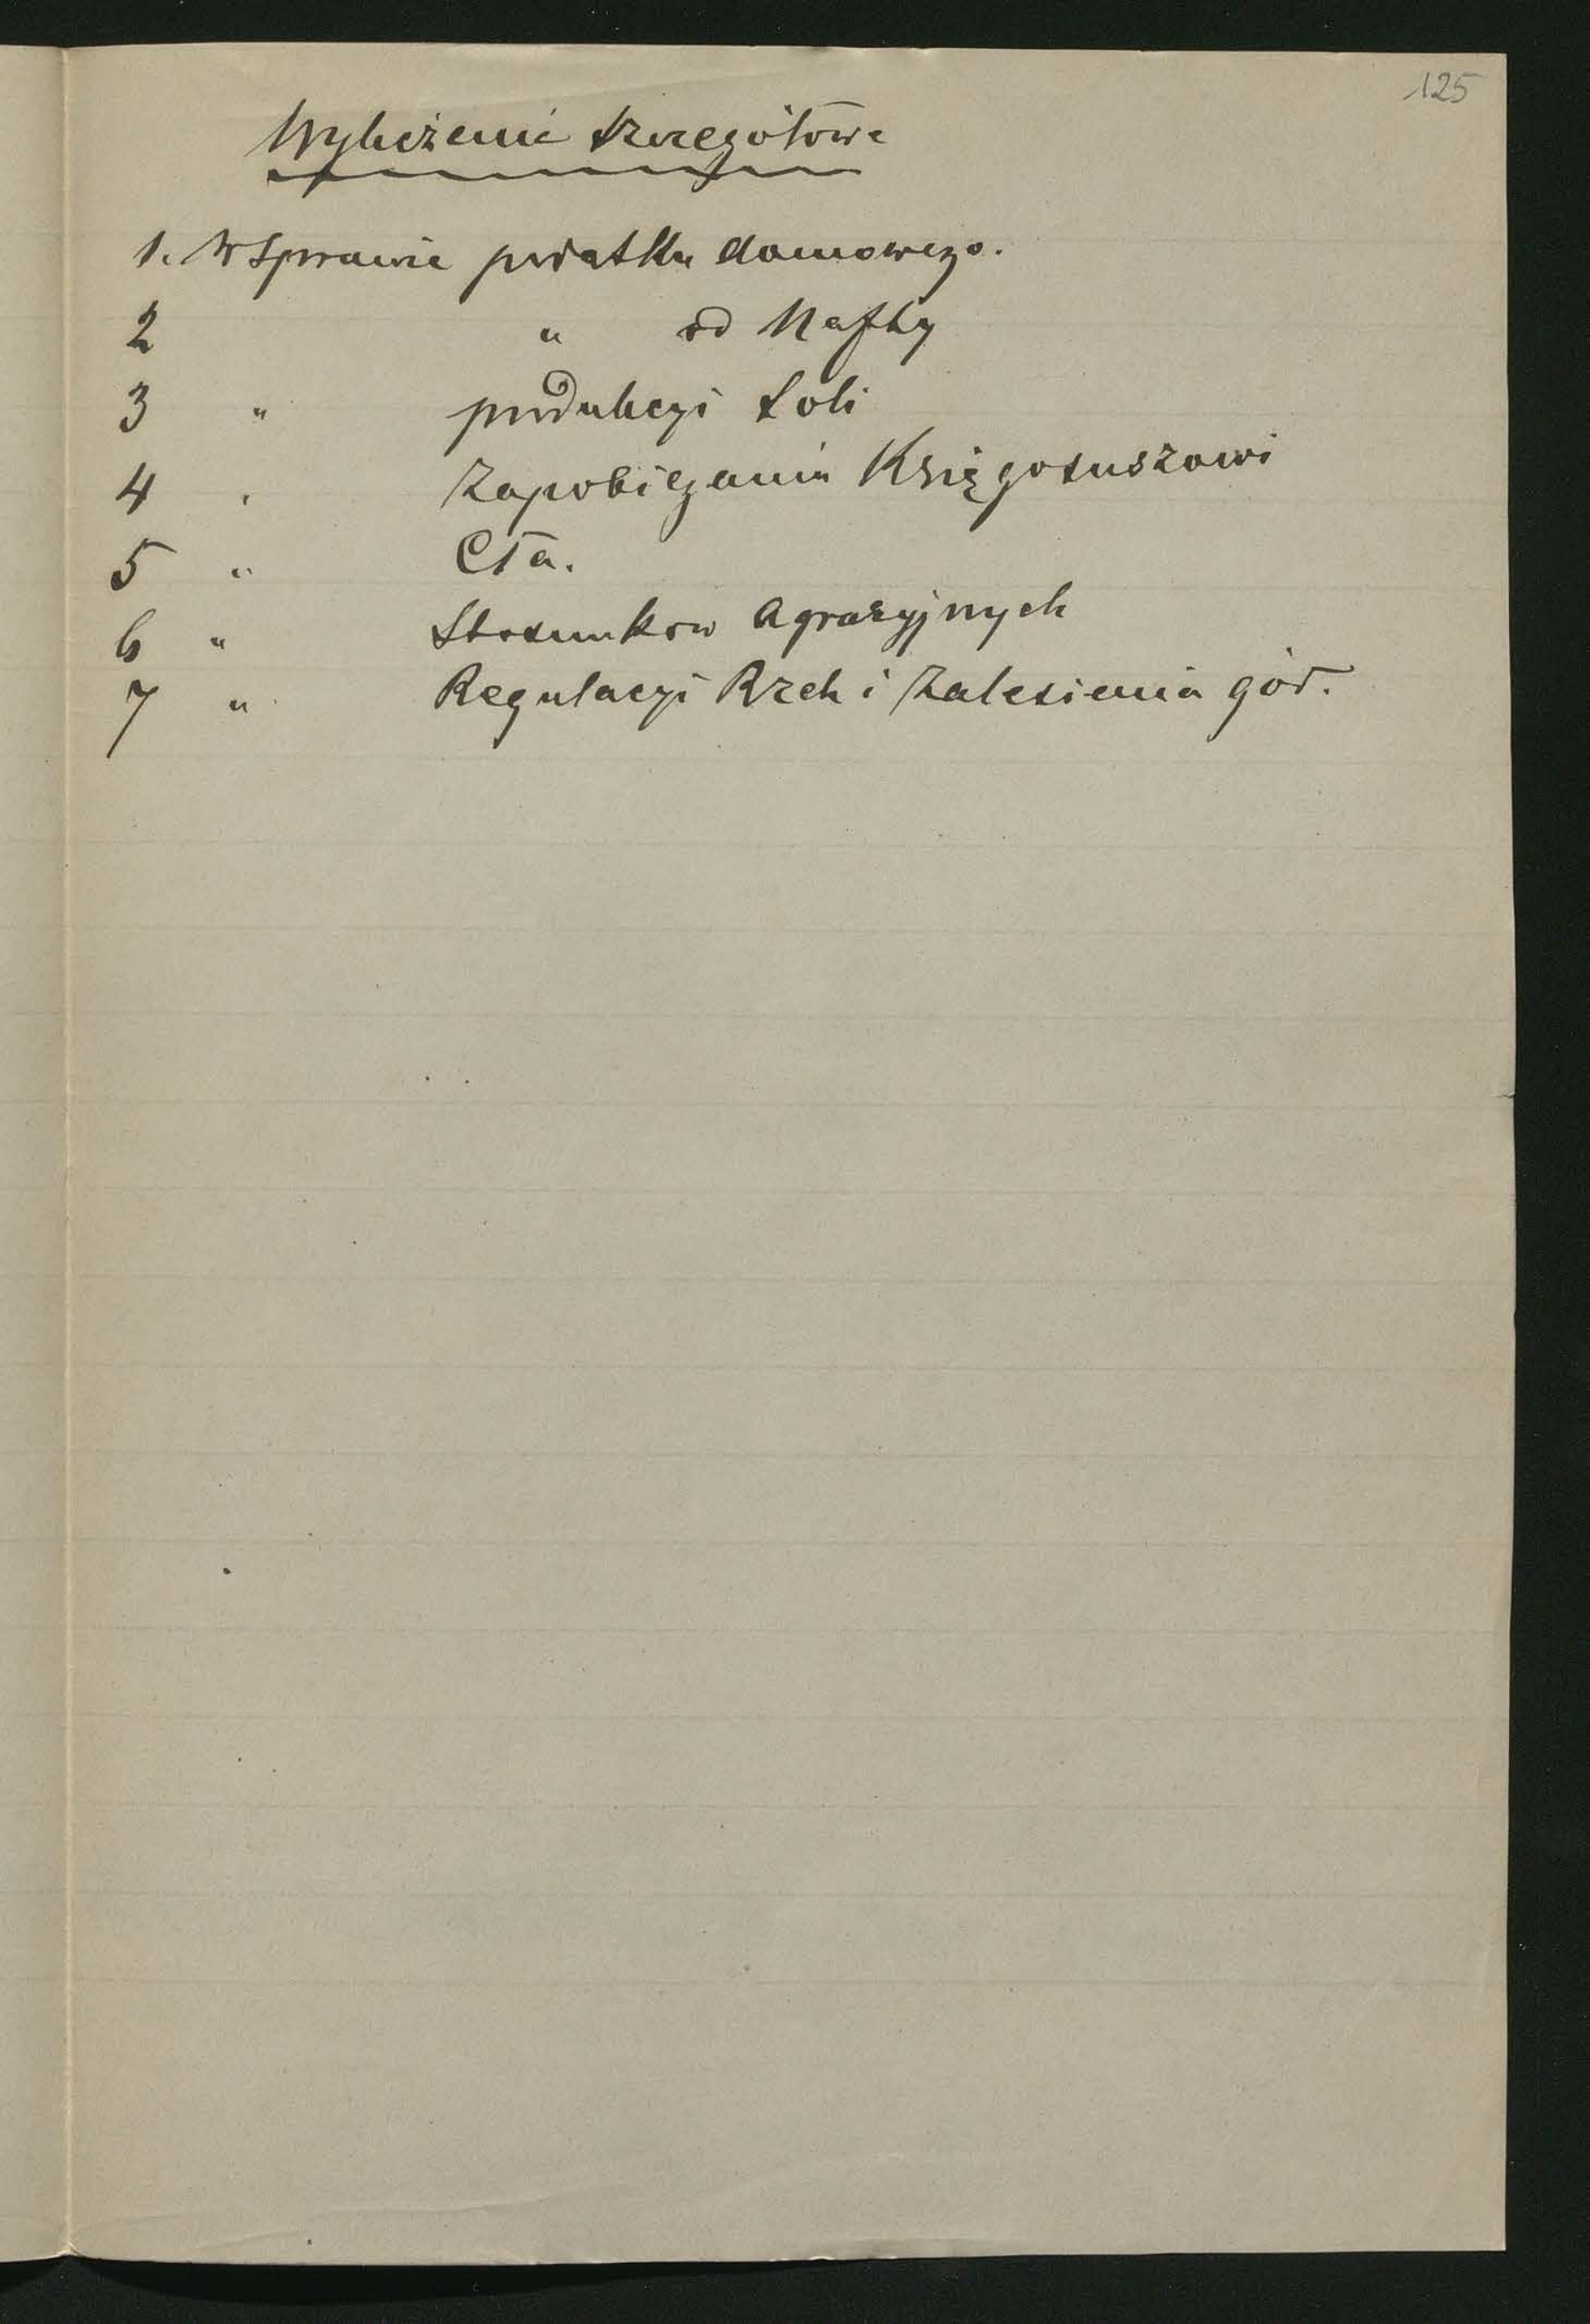 125
Wyliczenie szczegółowe
1. W Sprawie podatku domowego.
2 " od Nafty
3 " produkcyi Soli
4 " Zapobiegania Księgosuszowi
5 " Cła.
6 " Stosunkow Agraryjnych
7 " Regulacyi Rzek i Zalesienia gór.